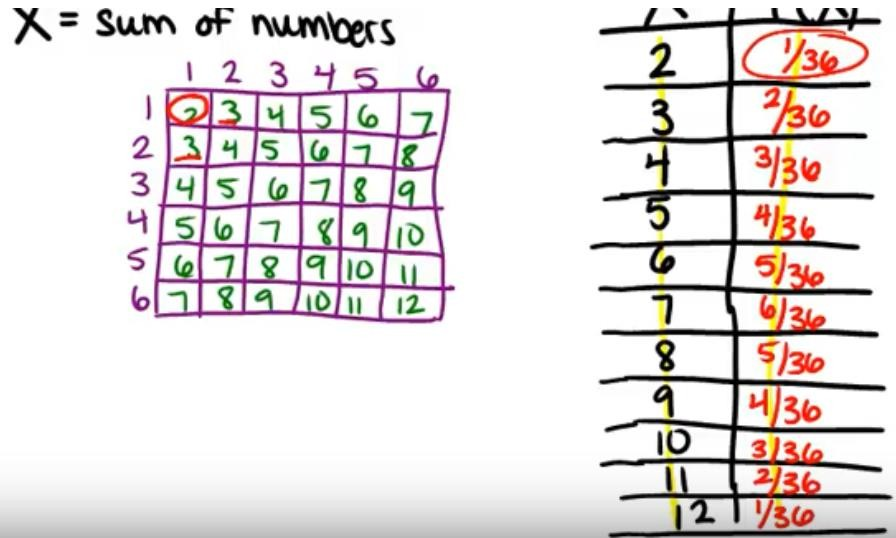 X = sum of numbers
1 2 3 4 5 6
1 2 3 4 5 6 7
2 3 4 5 6 7 8
3 4 5 6 7 8 9
4 5 6 7 8 9 10
5 6 7 8 9 10 11
6 7 8 9 10 11 12
2 1/36
3 2/36
4 3/36
5 4/36
6 5/36
7 6/36
8 5/36
9 4/36
10 3/36
11 2/36
12 1/36